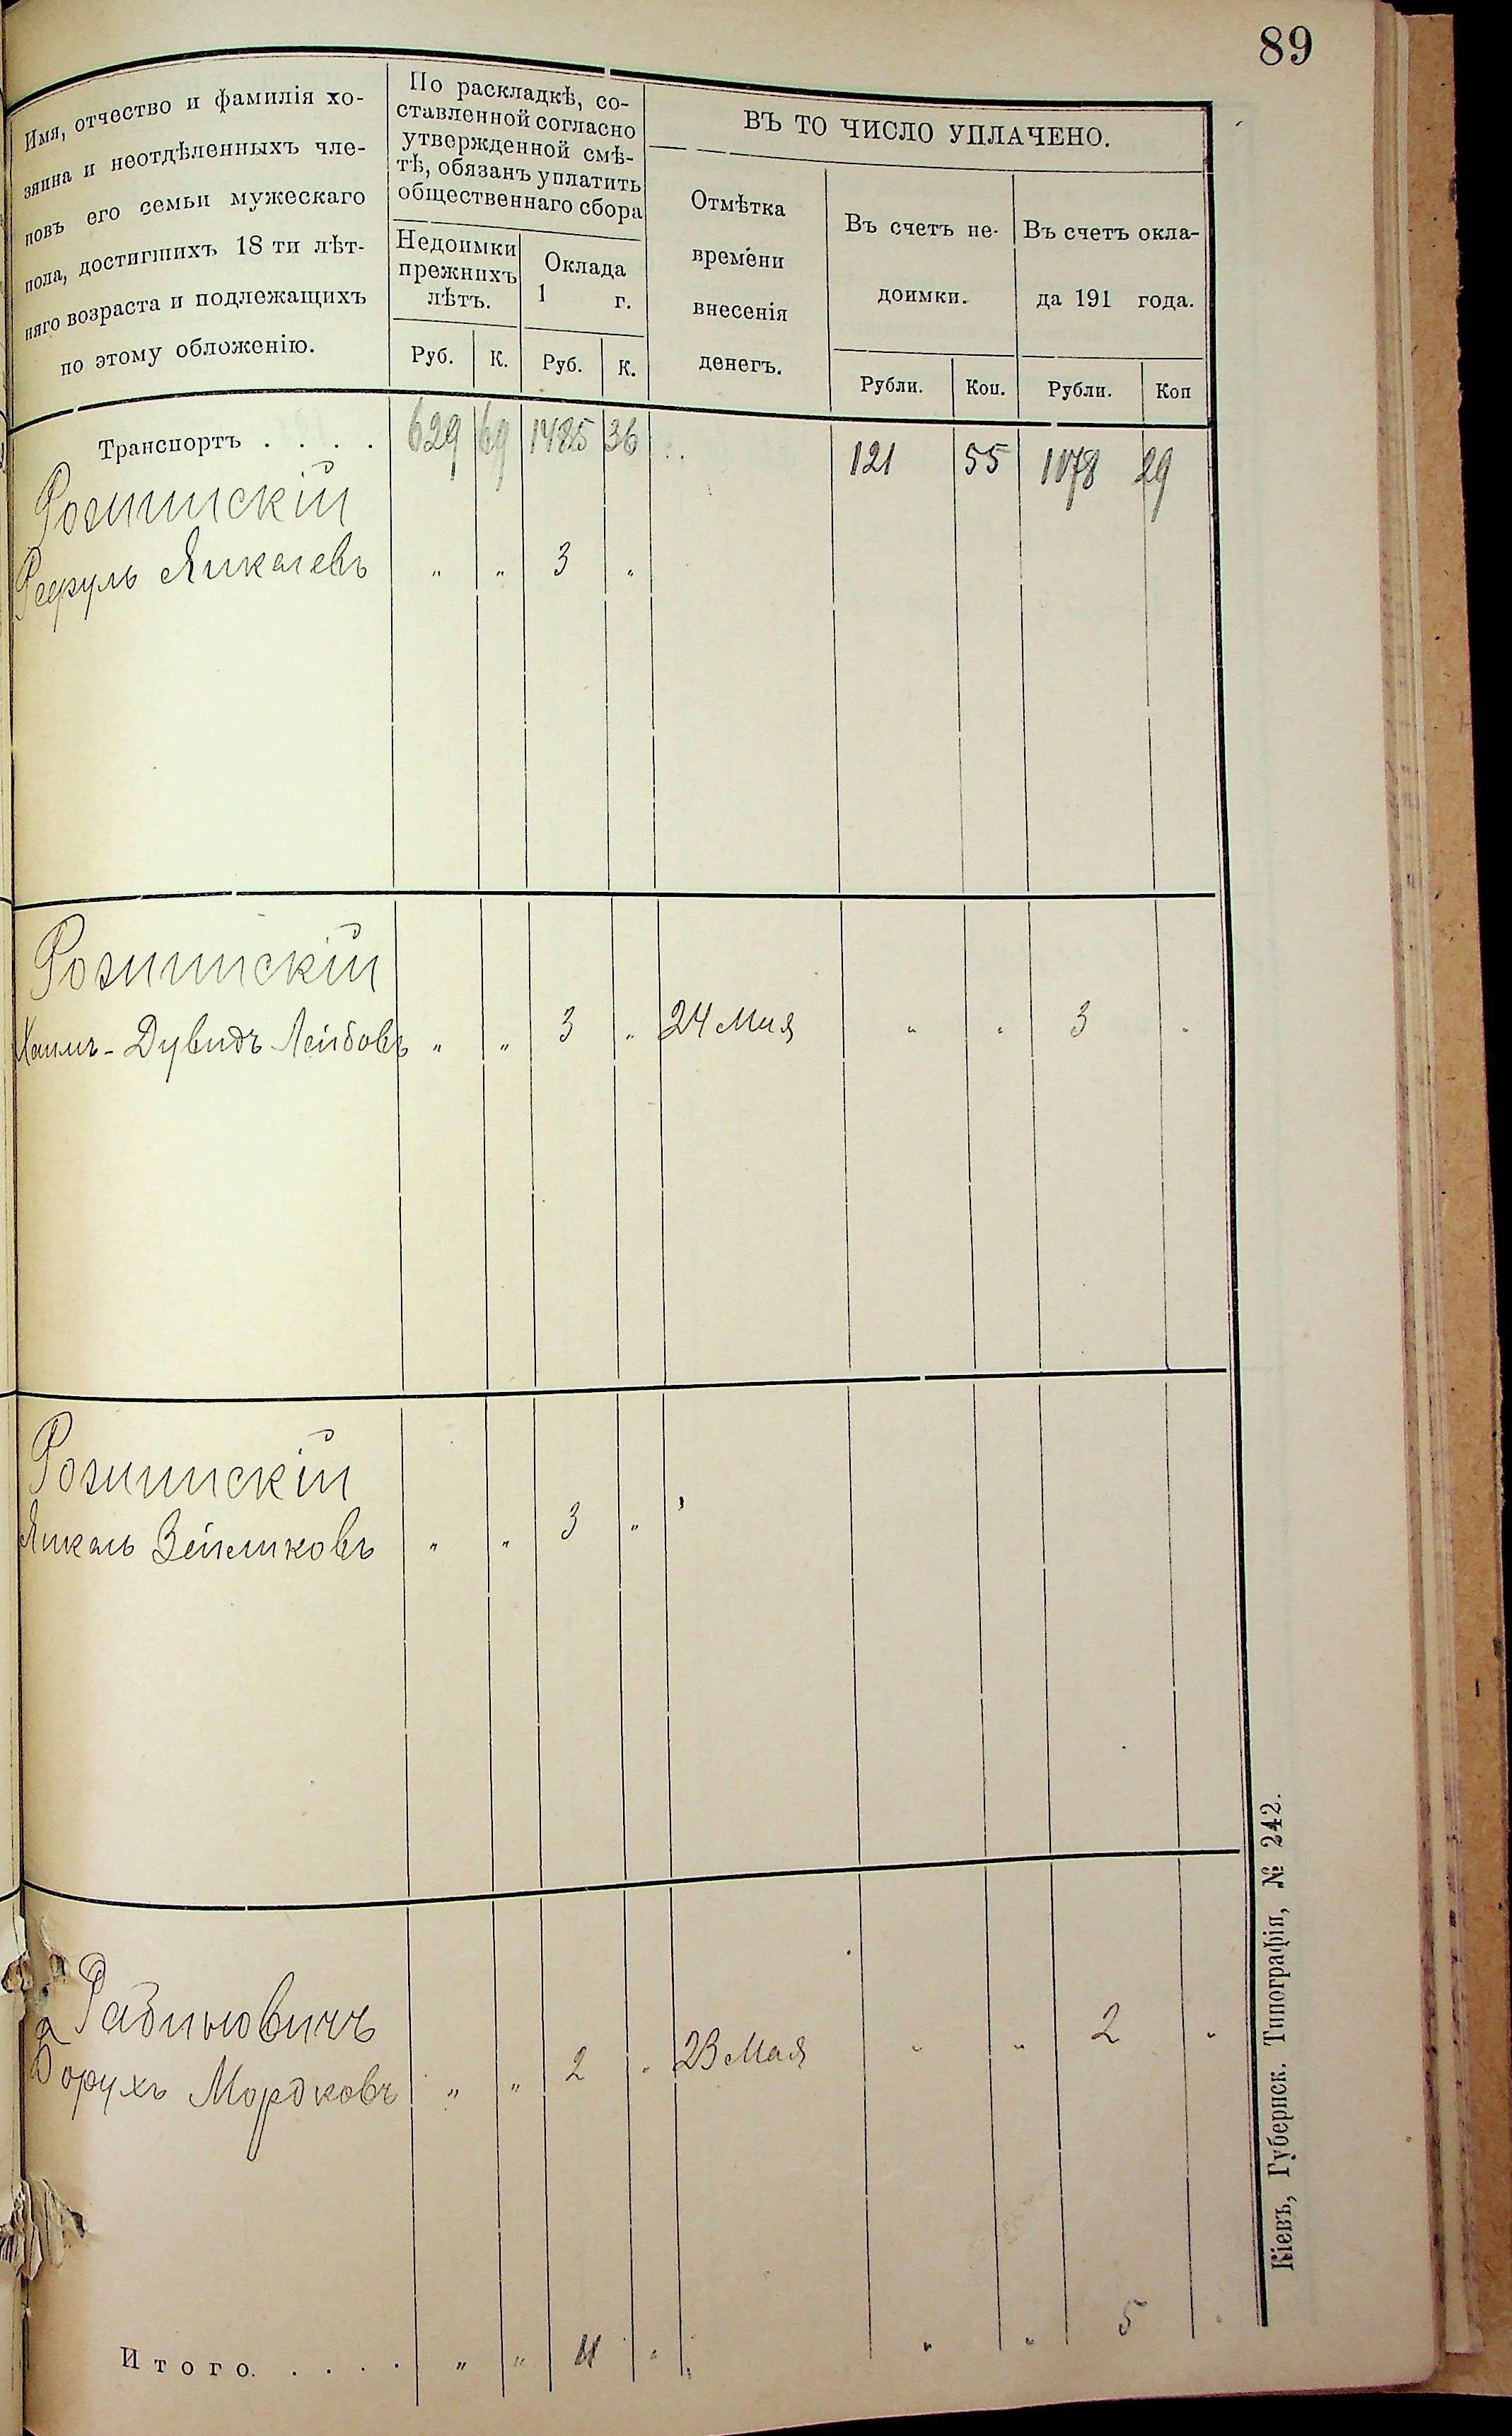 89
Имя, отчество и фамилія хо-
зяина и неотдѣленныхъ чле-
новъ его семьи мужескаго
пола, достигшихъ 18 ти лѣт-
няго возраста и подлежащихъ
по этому обложенію.
По раскладкѣ, со-
ставленной согласно
утвержденной смѣ-
тѣ, обязанъ уплатить
общественнаго сбора
Недоимки
прежнихъ
лѣтъ.
Оклада
1 г.
Руб. К. Руб. К.
ВЪ ТО ЧИСЛО УПЛАЧЕНО.
Отмѣтка
времени
внесенія
денегъ.
Въ счетъ не-
доимки.
Въ счетъ окла-
да 191 года.
Рубли. Коп. Рубли. Коп
Транспортъ . . . . 629 69 1485 36 121 55 1078 29
Розинискій
Янкелевъ „ „ 3 „
Розинискій
Хаимъ-Дувидъ Лейбовъ „ „ 3 „ 24 Мая „ „ 3 „
Розинискій
Янкель Зейликовъ „ „ 3 „
Рабиновичъ
Борухъ Мордковъ „ „ 2 „ 23 Мая „ „ 2 „
Итого. . . . . „ „ 11 „ „ „ 5 „
Кіевъ, Губернск. Типографія, № 242.